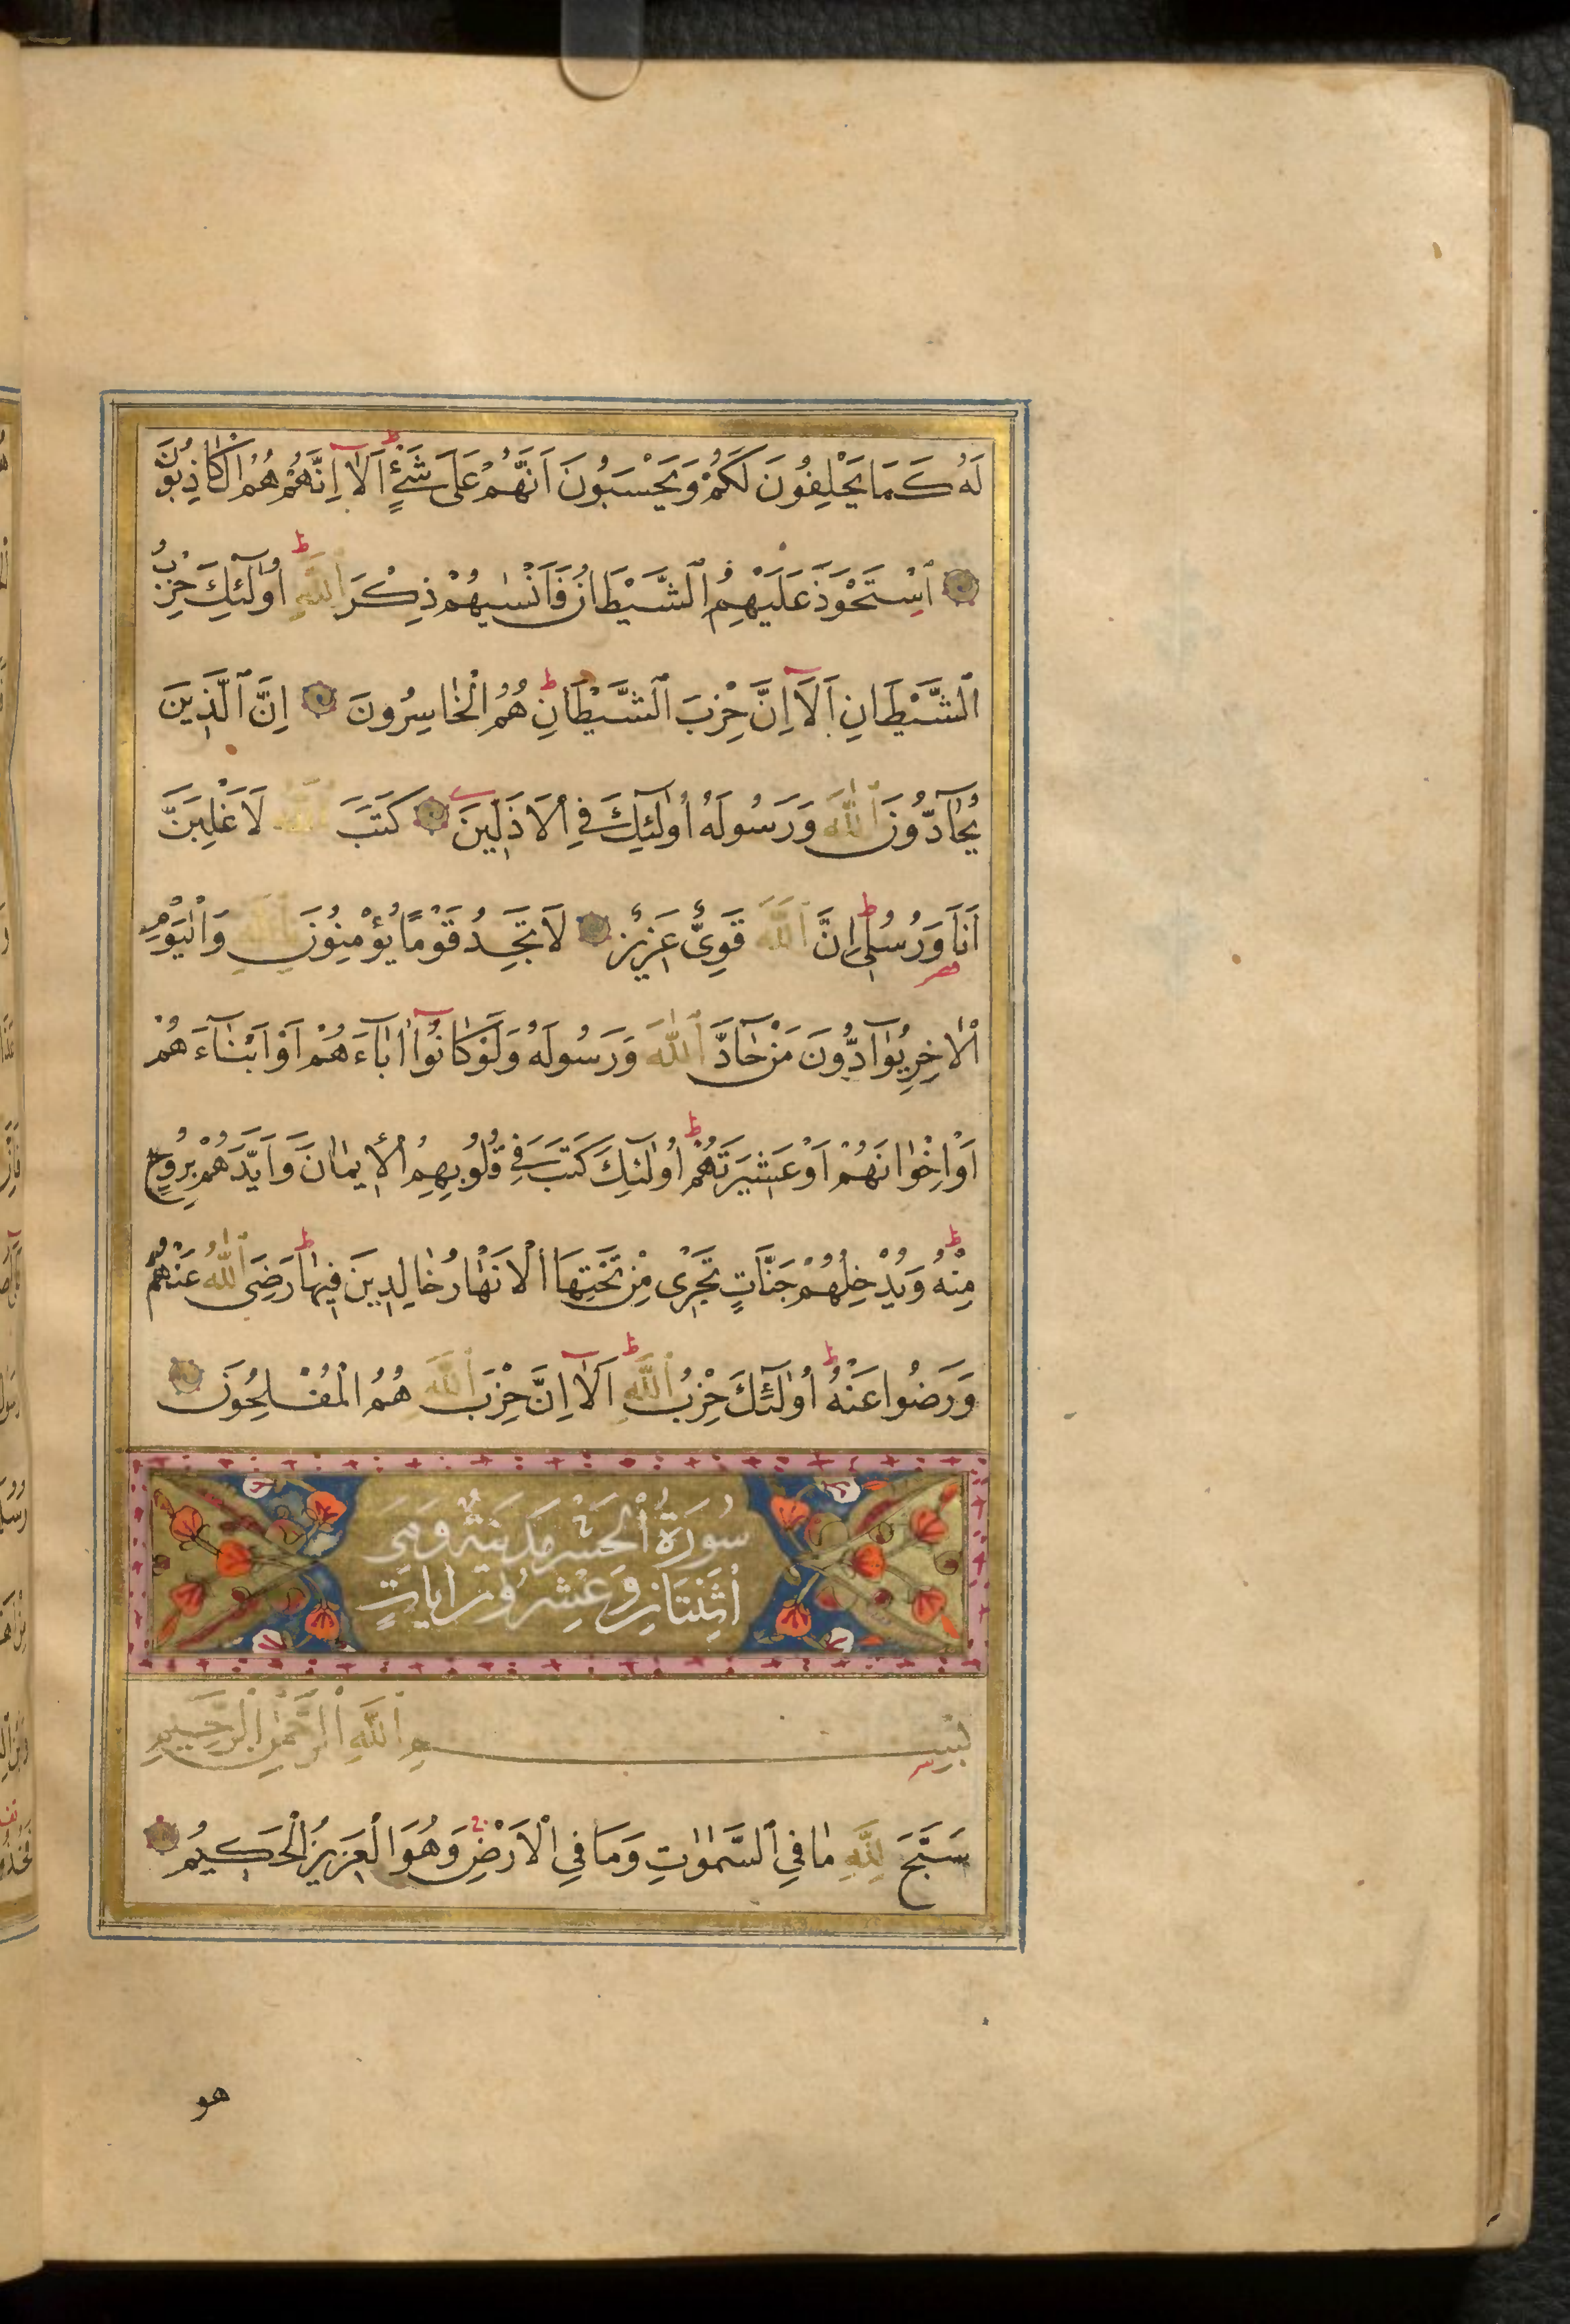 لَهُ كَمَا يَحْلِفُونَ لَكُمْ وَيَحْسَبُونَ اَنَّهُمْ عَلَى شَيْءٍ ط اَلَآ اِنَّهُمْ هُمُ الْكَاذِبُونَ
اَسْتَحْوَذَ عَلَيْهِمُ الشَّيْطَانُ فَاَنْسٰيهُمْ ذِكْرَ اللّٰهِ ط اُولٰٓئِكَ حِزْبُ
الشَّيْطَانِ اَلَآ اِنَّ حِزْبَ الشَّيْطَانِ ط هُمُ الْخَاسِرُونَ اِنَّ الَّذِينَ
يُحَآدُّونَ اللّٰهَ وَرَسُولَهُ اُولٰٓئِكَ فِي الْاَذَلِّينَ كَتَبَ اللّٰهُ لَاَغْلِبَنَّ
اَنَا۬ وَرُسُلِى ط اِنَّ اللّٰهَ قَوِىٌّ عَزِيزٌ لَا تَجِدُ قَوْمًا يُؤْمِنُونَ بِاللّٰهِ وَالْيَوْمِ
الْاٰخِرِ يُوَآدُّونَ مَنْ حَآدَّ اللّٰهَ وَرَسُولَهُ وَلَوْ كَانُوٓا اٰبَآءَهُمْ اَوْ اَبْنَآءَهُمْ
اَوْ اِخْوَانَهُمْ اَوْ عَشِيرَتَهُمْ ط اُولٰٓئِكَ كَتَبَ فِي قُلُوبِهِمُ الْاِيمَانَ وَاَيَّدَهُمْ بِرُوحٍ
مِنْهُ ط وَيُدْخِلُهُمْ جَنَّاتٍ تَجْرِى مِنْ تَحْتِهَا الْاَنْهَارُ خَالِدِينَ فِيهَا ط رَضِىَ اللّٰهُ عَنْهُمْ
وَرَضُوا عَنْهُ ط اُولٰٓئِكَ حِزْبُ اللّٰهِ ط اَلَآ اِنَّ حِزْبَ اللّٰهِ هُمُ الْمُفْلِحُونَ
سُورَةُ الْحَشْرِ مَدَنِيَّةٌ وَهِىَ
اَثْنَتَانِ وَعِشْرُونَ اٰيَاتٍ
بِسْمِ اللّٰهِ الرَّحْمٰنِ الرَّحِيمِ
سَبَّحَ لِلّٰهِ مَا فِي السَّمٰوَاتِ وَمَا فِي الْاَرْضِ وَهُوَ الْعَزِيزُ الْحَكِيمُ
هو